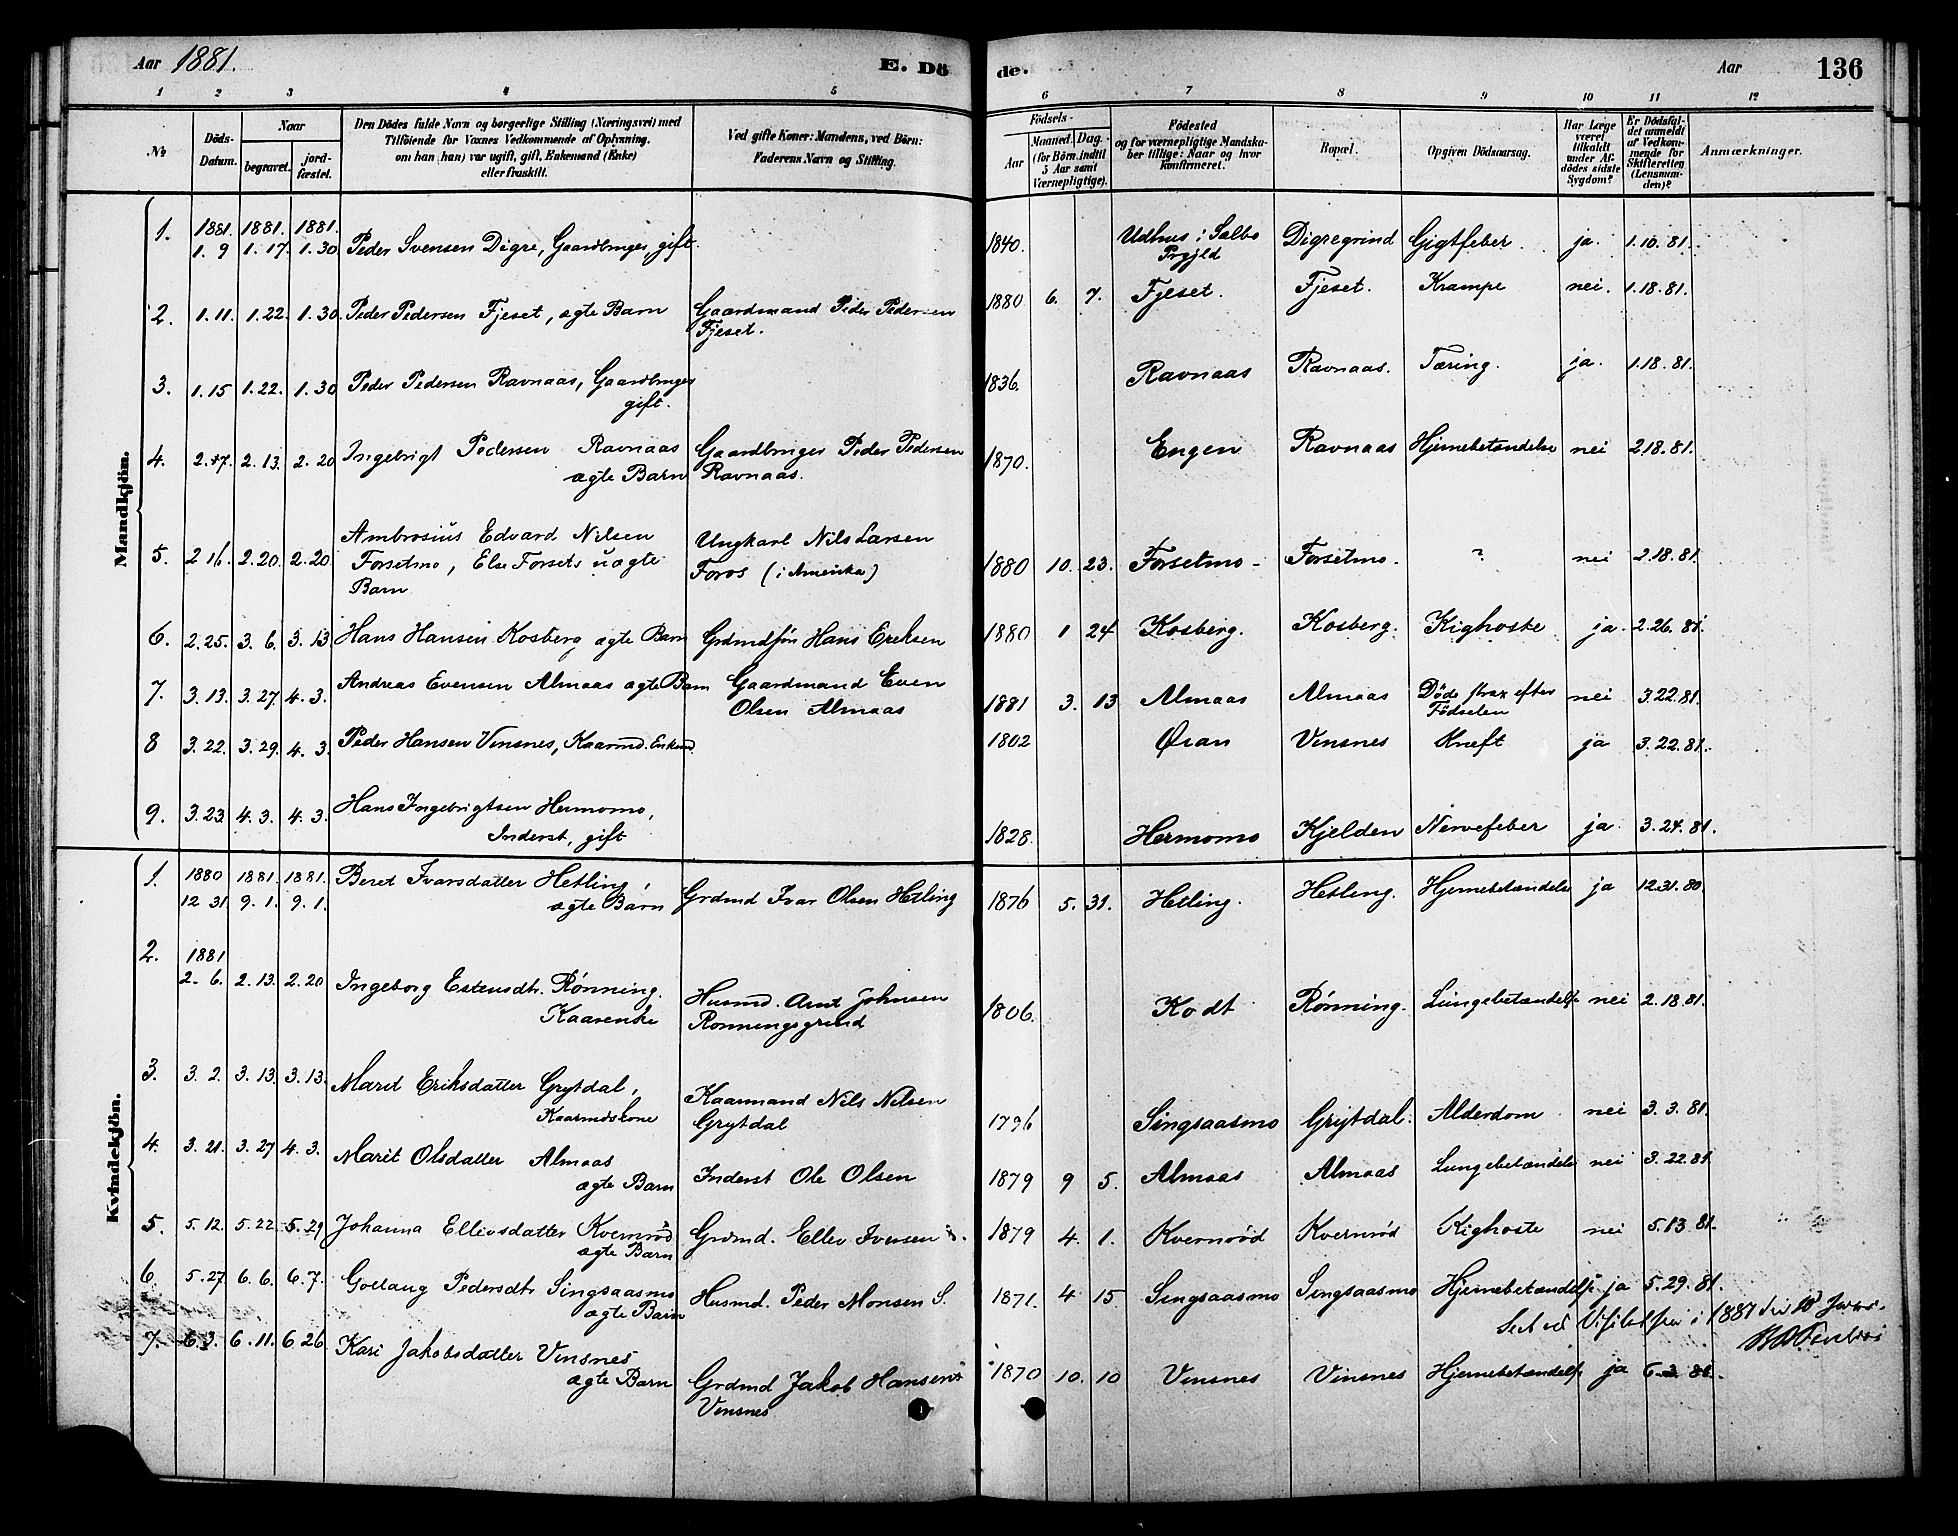 Aar 1881. E. Dö de. Aar 136
1 2 3 4 5 6 7 8 9 10 11 12
No.
Döds-Datum.
Naar
begravet. jordfæstet.
Den Dödes fulde Navn og borgerlige Stilling (Næringsvei) med
Tilföiende for Voxnes Vedkommende af Oplysning,
om han (hun) var ugift, gift, Enkemand (Enke)
eller fraskilt.
Ved gifte Koner: Mandens, ved Börn:
Faderens Navn og Stilling.
Födsels-
Aar
Maaned. Dag.
(for Börn indtil
5 Aar samt
Værnepligtige).
Födested
og for værnepligtige Mandska-
ber tillige: Naar og hvor
konfirmeret.
Bopæl.
Opgiven Dödsaarsag.
Har Læge
været
tilkaldt
under Af-
dödes sidste
Sygdom?
Er Dödsfal-
det anmeldt
af Vedkom-
mende for
Skifteretten
(Lensman-
den)?
Anmærkninger.
Mandkjön.
1. 1881. 1881. 1881.
1. 9 1. 17. 1. 30 Peder Svensen Digre, Gaardbruger, gift. 1840. Udhus i Salbo Digregrind Gigtfeber. ja. 1.10.81.
Prgjld
2. 1.11. 1.22. 1.30. Peder Pedersen Fjeset, ægte Barn Gaardmand Peder Pedersen 1880 6. 7. Fjeset. Fjeset. Krampe nei. 1.18.81.
Fjeset.
3. 1.15 1.22. 1.30 Peder Pedersen Ravnaas, Gaardbruger 1836. Ravnaas Ravnaas. Tæring. ja. 1.18.81.
gift.
4. 2. 7. 2. 13. 2. 20 Ingebrigt Pedersen Ravnaas Gaardbruger Peder Pedersen 1870. Engen Ravnaas Hjernebetændelse nei 2.18.81.
ægte Barn Ravnaas.
Ambrosius Edvard Nilsen Ungkarl Nils Larsen
5. 2 16. 2.20. 2.20. Forsetmo, Else Forsets uægte Foros (i Amerika) 1880 10. 23. Forsetmo Forsetmo. ? nei 2.18.81.
Barn
6. 2.25. 3. 6. 3. 13. Hans Hansen Kosberg ægte Barn Grdmd Hans Eriksen 1880 1 24 Kosberg. Kosberg. Kighoste ja. 2.26.81.
7. 3.13. 3.27. 4. 3. Andreas Evensen Almaas ægte Barn Gaardmand Even 1881 3. 13 Almaas Almaas Döde strax efter nei 3.22.81.
Olsen Almaas Födselen
8 3.22. 3.29. 4. 3. Peder Hansen Vinsnes, Kaarmd. Enkmd. 1802 Øian Vinsnes Kræft ja 3.22.81.
9. 3.23. 4.3. 4. 3. Hans Ingebrigtsen Hermomo,
Inderst, gift 1828. Hermomo Kjelden Nervefeber ja. 3.24.81.
Kvindekjön.
1. 1880 1881. 1881. Beret Ivarsdatter Hetling,
12 31. 9. 1. 9. 1. ægte Barn Grdmd Ivar Olsen Hetling 1876 5. 31. Hetling. Hetling. Hjernebetændelse ja 12.31.80.
2. 1881
2. 6. 2.13. 2.20 Ingeborg Estensdtr. Rönning. Husmd. Arnt Johnsen 1806. Kodt Rönning. Lungebetændelse nei 2.18.81.
Kaarenke Ronningsgrind
3. 3. 2. 3. 13. 3. 13. Marit Eriksdatter Grytdal, Kaarmand Nils Nilsen
Kaarmdskone Grytdal 1796 Singsaasmo Grytdal. Alderdom nei 3.3.81.
4. 3.21. 3.27 4.3. Marit Olsdatter Almaas
ægte Barn Inderst Ole Olsen 1879 9 5. Almaas Almaas Lungebetændelse nei 3.22.81.
5. 5.12. 5.22. 5.29 Johanna Ellevsdatter Kvernröd Grdmd. Ellev Iversen 1879 4. 1. Kvernröd Kvernröd Kighoste nei 5.13.81.
ægte Barn
6. 5.27. 6.6. 6.7. Gollaug Pedersdtr Singsaasmo Husmd. Peder Monsen S. 1871. 4 15 Singsaasmo Singsaasmo Hjernebetændelse ja 5.29.81.
ægte Barn
i 1881
7. 6.3. 6.11. 6.26. Kari Jakobsdatter Vinsnes
ægte Barn Grdmd Jakob Hansen 1870 10. 10 Vinsnes Vinsnes Hjernebetændelse ja
Vinsnes